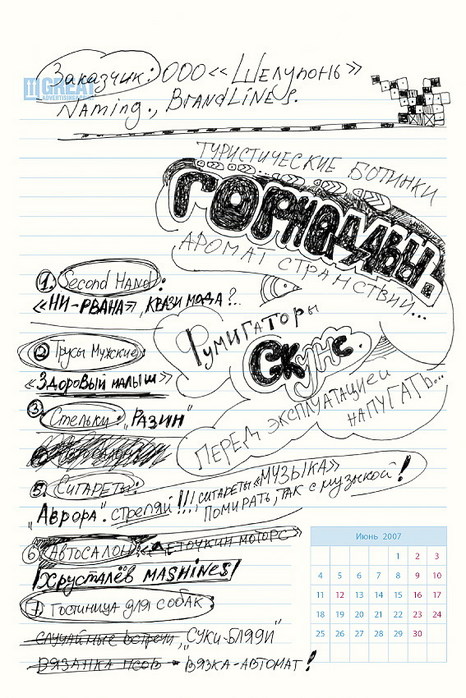 Заказчик: ООО «Шелупонь»
GREAT
Naming., BrandLINEs.
Туристические ботинки
ГОРНАДВЫ.
Аромат странствий...
1. Second Hand:
«Ни-рвана», квази мода?..
Фумигаторы
Скунс.
Перед эксплуатацией
напугать...
2 Трусы Мужские:
«Здоровый малыш»
3. Стельки: "Разин"
5. Сигареты:
"Аврора". стреляй!!! сигареты «Музыка»
Помирать, так с музыкой!
6 Автосалон: «Деточкин моторс»
Хрусталёв MASHINES!
7 Гостиница для собак
случайные встречи, "Суки-Бляди"
Вязанка псов - Вязка-автомат!
Июнь 2007
1 2 3
4 5 6 7 8 9 10
11 12 13 14 15 16 17
18 19 20 21 22 23 24
25 26 27 28 29 30